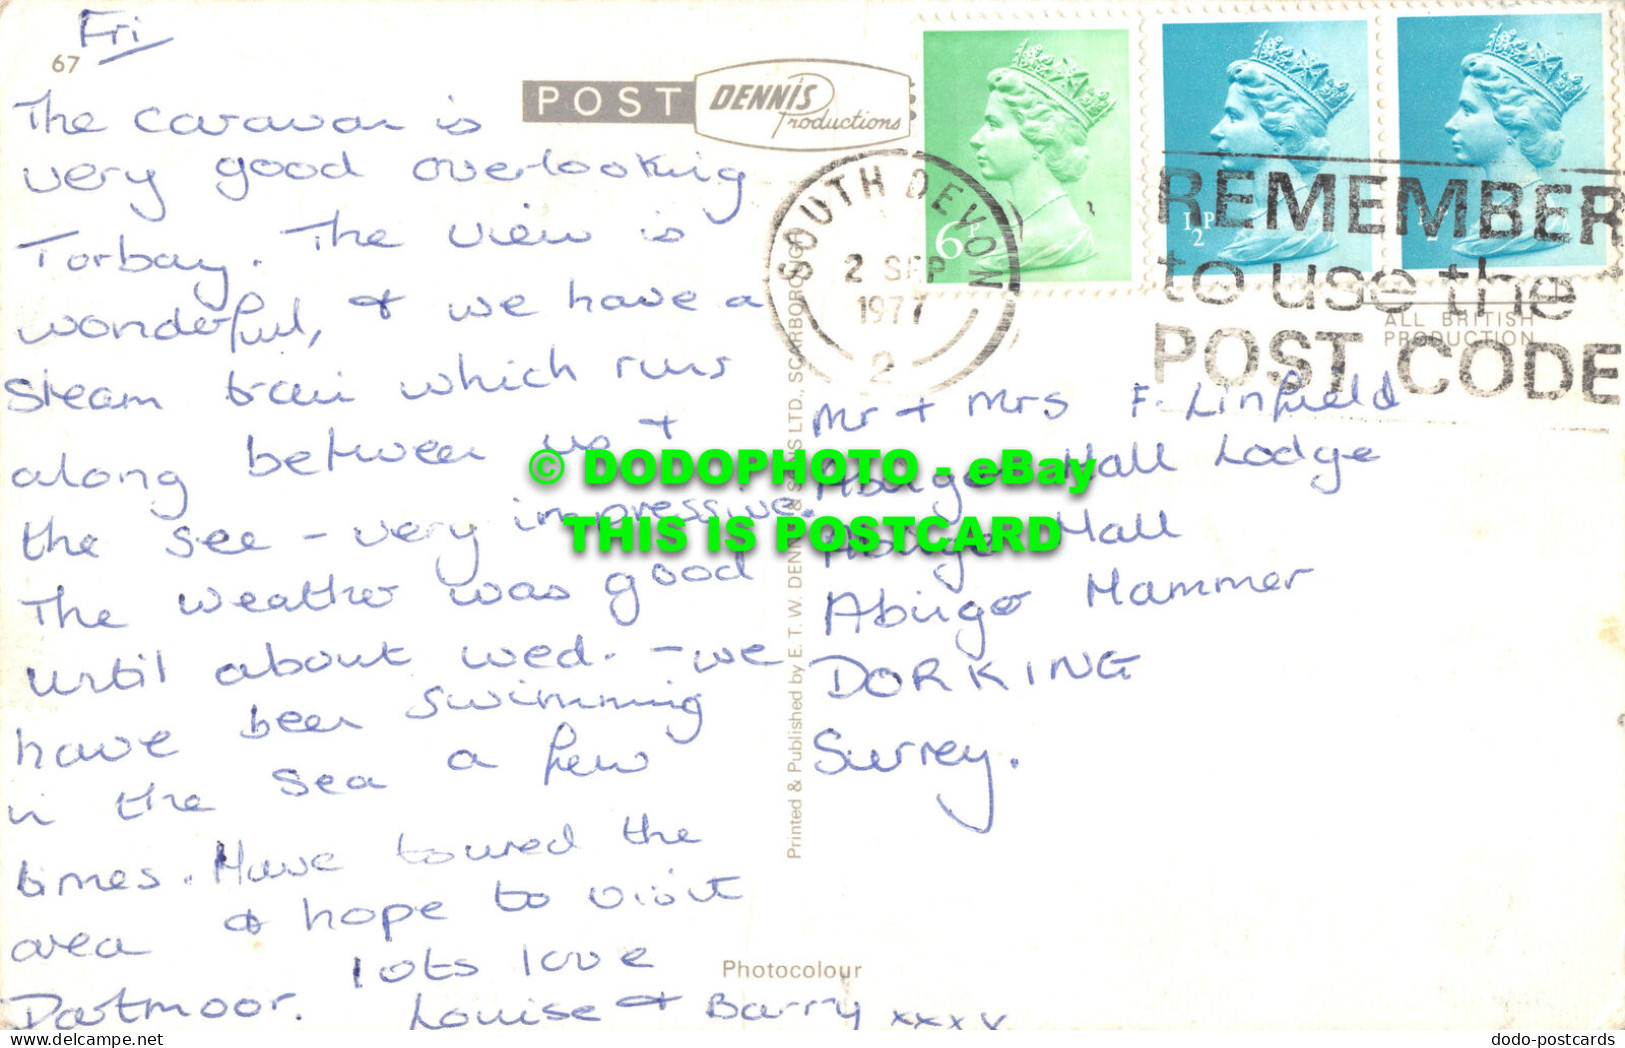 Fri
67
The caravan is
very good overlooking
Torbay. The view is
wonderful, & we have a
steam train which runs
along between us +
the sea - very impressive.
The weather was good
until about wed. - we
have been swimming
in the sea a few
times. Have toured the
area & hope to visit
Dartmoor. lots love
Louise + Barry xxxx
POST
DENNIS
Productions
SOUTH DEVON
2 SEP
1977
2
6P
½P
½
REMEMBER
to use the
POST CODE
ALL BRITISH
PRODUCTION
Mr + Mrs F. Linfield
Abinger Hall Lodge
Abinger Hall
Abinger Hammer
DORKING
Surrey.
Printed & Published by E. T. W. DENNIS & SONS LTD., SCARBOROUGH
Photocolour
© DODOPHOTO - eBay
THIS IS POSTCARD
dodo-postcards